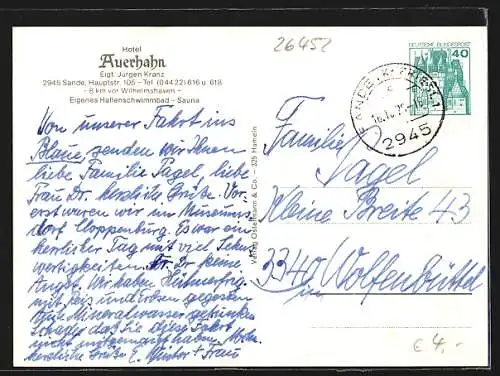 26452
Hotel
Auerhahn
Eigt. Jürgen Kranz
2945 Sande, Hauptstr. 105 – Tel. (04422) 616 u. 618
– 8 km vor Wilhelmshaven –
Eigenes Hallenschwimmbad – Sauna
DEUTSCHE BUNDESPOST
40
SANDE, KR FRIESL 1
2945
Von unserer Fahrt ins
Blaue, senden wir Ihnen
liebe Familie Pagel, liebe
Frau Dr. herzliche Grüße. Vor-
erst waren wir im Museums
dorf Cloppenburg. Es war ein
herrlicher Tag mit viel Sehens
würdigkeiten. Dr. keine
Angst. Wir haben Hühnerfrig.
mit Reis und Erbsen gegessen
Mineralwasser getrunken
Schade, daß Sie diese Fahrt
nicht mitgemacht haben.
herzliche Grüße E. + Frau
Verlag Ostermann & Co. – 325 Hameln
Familie
Pagel
Kleine Breite 43
3340 Wolfenbüttel
€ 4,-